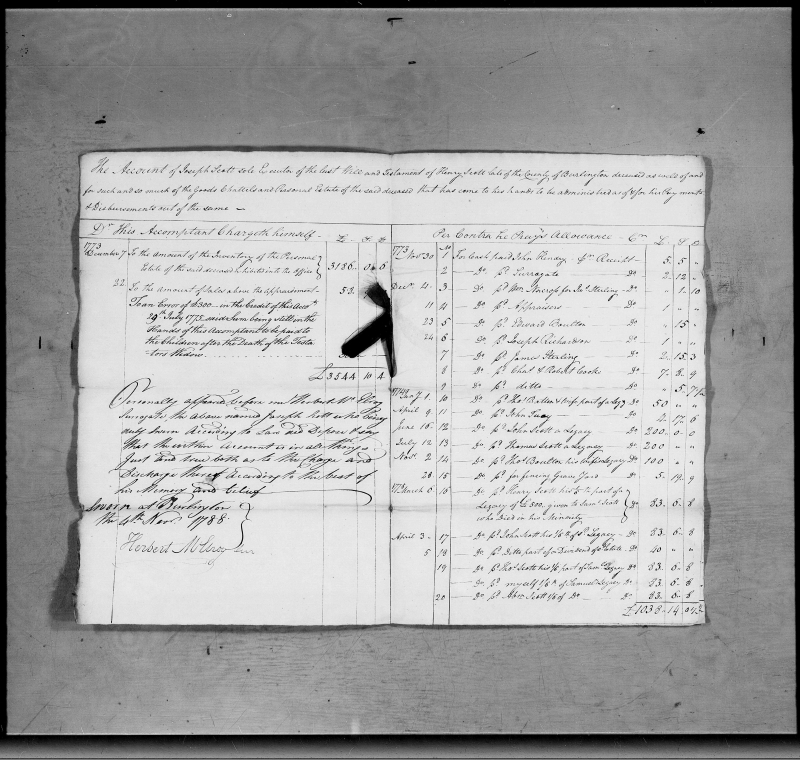 The Account of Joseph Scott sole Executor of the last Will and Testament of Henry Scott late of the County of Burlington deceased as well of and
for such and so much of the Goods Chattels and Personal Estate of the said deceased that has come to his hands to be administered as of & for his Pay ments
& Disbursements out of the same
Dr This Accomptant Chargeth himself
£ S D
1773
December 7 To the amount of the Inventory of the Personal
Estate of the said deceased exhibited into the Office 3186 0 6
22 To the amount of Sales above the Appraisement 53
To an Error of £300 in the Credit of this Acct
29th July 1775 said sum being still in the
Hands of this Accomptant to be paid to
the Children after the Death of the Testa
tors Widow
£3544 10 4
Personally appeared before me Herbert McElroy
Surrogate the above named Joseph Scott who being
duly Sworn According to Law did Depose & say
that the within account is in all things
Just and true both as to the Charge and
Discharge thereof According to the best of
his Memory and belief
Sworn at Burlington
the 4th Novr 1788
Herbert McElroy Surr
Per Contra he Prays Allowance Cr £ S D
No
1773 Novr 30 1 For Cash paid John Henary Pr Receipt 5 5 "
2 do pd Surrogate do 2 12 "
Decr 4 3 do pd Wm Norcross for Jas Sterling do " 1 10
11 4 do pd Appraisors do 1 " "
23 5 do pd Edward Boulton do " 15 "
24 6 do pd Joseph Richardson do 1 " "
7 do pd James Sterling do 2 15 3
8 do pd Chas & Robert Cooke do 7 5 9
9 do pd ditto do " 5 7 1/2
Jany 1 10 do pd Thos do 50 " "
April 9 11 do pd John do 2 17 6
June 16 12 do pd John Scott a Legacy do 200 0 0
July 12 13 do pd Thomas Scott a Legacy do 200 " "
Novr 2 14 do pd Thos Boulton his Wifes Legacy do 100 " "
26 15 do pd for fencing Grave Yard do 5 19 9
March 6 16 do pd Henry Scott his 1/6 part of a
Legacy of £500, given to Saml Scott
who Died in his Minority do 83 6 8
April 3 17 do pd John Scott his 1/6 of sd Legacy do 83 6 8
5 18 do pd Ditto part of a Dividend of sd Estate do 40 " "
19 do pd Thos Scott his 1/6 part of Saml Legacy do 83 6 8
do pd myself 1/6th of Samuels Legacy do 83 6 8
20 do pd Scott 1/6 of Do do 83 6 8
£1038 14 0 1/2